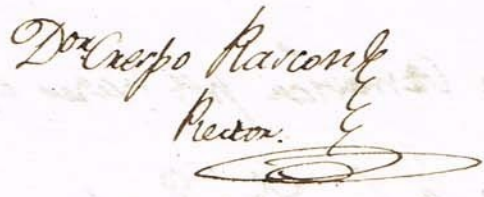 Dor Crespo Rascon
Rector.